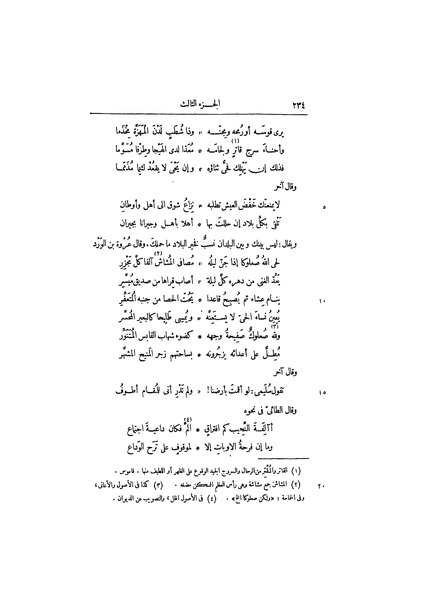 ٢٣٤ الجزء الثالث
يرى قوسه أو رمحه ومجنه * وذا شطب لدن المهزة مخذما
وأحناء سرج قاتر(١) ولجامه * معدا لدى الهيجا وطرفا مسوما
فذلك إن يهلك فحى ثناؤه * وإن يحى لا يقعد لئيما مذمما
وقال آخر
٥ لا يمنعنك خفض العيش تطلبه * نزاع شوق الى أهل وأوطان
تلقى بكل بلاد إن حللت بها * أهلا بأهل وجيرانا بجيران
ويقال: ليس بينك وبين البلدان نسب فخير البلاد ما حملك. وقال عروة بن الورد
لحى الله صعلوكا إذا جن ليله * مصافى المشاش(٢) آلفا كل مجزر
يعد الغنى من دهره كل ليلة * أصاب قراها من صديق ميسر
١٠ ينام عشاء ثم يصبح قاعدا * يحت الحصا من جنبه المتعفر
يعين نساء الحى لا يستعنه * ويمسى طليحا كالبعير المحسر
ولله(٣) صعلوك صفيحة وجهه * كضوء شهاب القابس المتنور
مطل على أعدائه يزجرونه * بساحتهم زجر المنيح المشهر
وقال آخر
١٥ تقول سليمى: لو أقمت بأرضنا! * ولم تدر أنى للمقام أطوف
وقال الطائى فى نحوه
أآلفة النحيب كم افتراق * ألم(٤) فكان داعية اجتماع
وما إن فرحة الأوبات إلا * لموقوف على ترح الوداع
(١) القاتر والمقتر من الرحال والسروج الجيد الوقوع على الظهر أو اللطيف منها . قاموس .
٢٠ (٢) المشاش جمع مشاشة وهى رأس العظم الممكن مضغه . (٣) كذا فى الأصول والأغانى،
وفى الحماسة : «ولكن صعلوكا الخ» . (٤) فى الأصول الجل، والتصويب عن الديوان .